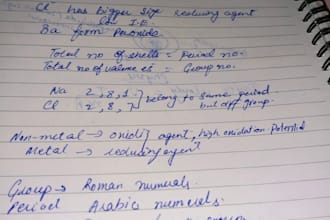 Cl has bigger size reducing agent
low I.E.
Ba form Peroxide.
Total no of shells = period no.
Total no of valence es = Group no.
Na 2,8,1 } belong to same period
Cl 2,8,7 but diff group.
Non-metal → oxidi agent, high oxidation potential
Metal → reducing agent
Group → Roman numerals.
Period Arabic numerals.